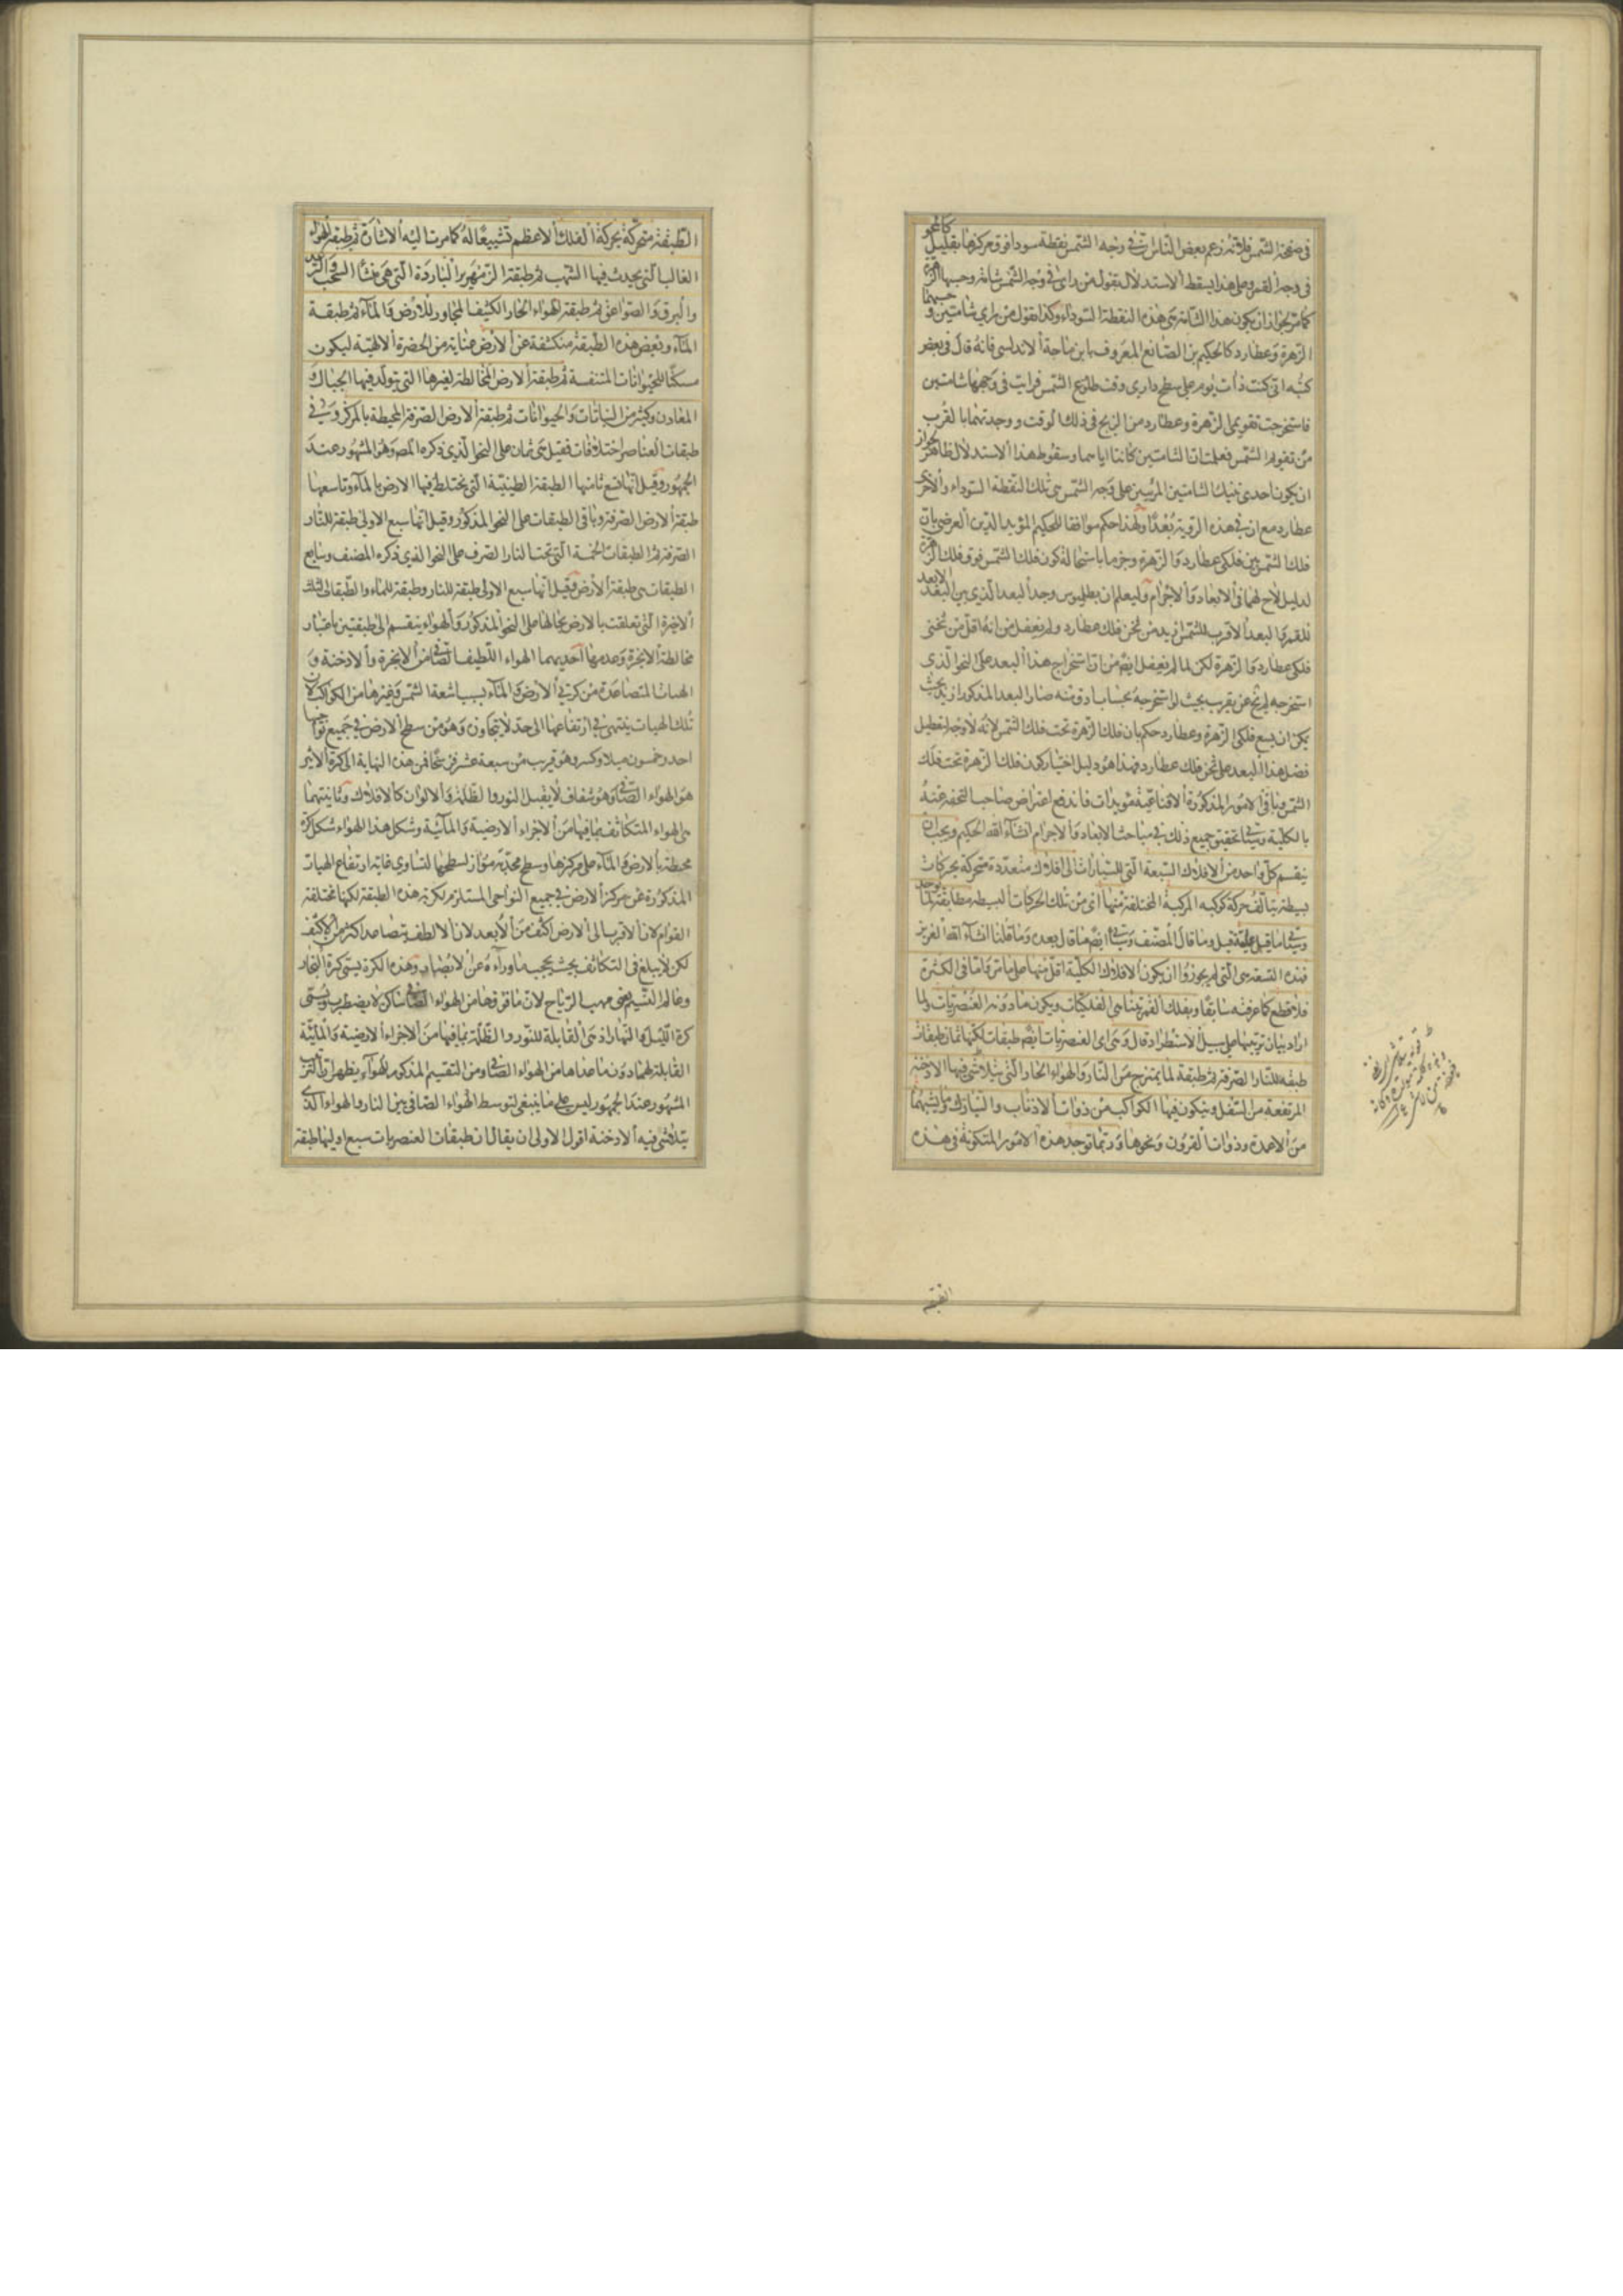 في صفحة الشمس فلانه زعم بعض الناس ان في وجه الشمس نقطة سودا فوق مركزها بقليل كالمحو
في وجه القمر وعلى هذا يسقط الاستدلال بقول من راى في وجه الشمس شامة وحسبها الزهرة
كما مر لجواز ان يكون هذا الشامة هي هذه النقطة السوداء وكذا بقول من راي شامتين وحسبهما
الزهرة وعطارد كالحكيم بن الصانع المعروف بابن باجة الاندلسي فانه قال في بعض
كتبه انى كنت ذات يوم على سطح دارى وقت طلوع الشمس فرايت في وجهها شامتين
فاستخرجت تقويمى الزهرة وعطارد من الزيج في ذلك الوقت ووجدتهما بالقرب
من تقويم الشمس فعلمت ان الشامتين كانتا اياهما وسقوط هذا الاستدلال ظاهر لجواز
ان يكون احدى تينك الشامتين المرئيتين على وجه الشمس هي تلك النقطة السوداء والاخرى
عطارد مع ان في هذه الروية بعدا ولهذا حكم موافقا للحكيم المؤيد الدين العرضى بان
فلك الشمس بين فلكى عطارد والزهرة وجزما باستحالة كون فلك الشمس فوق فلك الزهرة
لدليل لاح لهما في الابعاد والاجرام وليعلم ان بطليموس وجد البعد الذي بين البعد الابعد
للقمر والبعد الاقرب للشمس ازيد من ثخن فلك عطارد ولم يغفل من انه اقل من ثخنى
فلكى عطارد والزهرة لكن لما لم يغفل ايضا من ان استخراج هذا البعد على النحو الذى
استخرجه لم يخ عن تقريب بحيث لو استخرجه بحساب ادق منه صار البعد المذكور ازيد بحيث
يمكن ان يسع فلكى الزهرة وعطارد حكم بان فلك الزهرة تحت فلك الشمس لانه لا وجه لتعطيل
فضل هذا البعد على ثخن فلك عطارد فهذا هو دليل اختيار كون فلك الزهرة تحت فلك
الشمس وباقى الامور المذكورة الاقناعية مؤيدات فاندفع اعتراض صاحب التحفه عنه
بالكلية وسياتى تحقيق جميع ذلك في مباحث الابعاد والاجرام انشاء الله الحكيم ويجب ان
ينقسم كل واحد من الافلاك السبعة التى للسيارات الى افلاك متعددة متحركة بحركات
بسيطة يتالف حركة كوكبه المركبة المختلفة منها اى من تلك الحركات البسيطة مطابقة لما يوجد
وسياتى ما قيل عليه قيل وما قال المصنف وسياتى ايضا ما قال بعده وما قلنا انشاء الله العزيز
فهذه التسعة هي التى لم يجوزوا ان يكون الافلاك الكلية اقل منها على ما مر واما في الكثرة
فلا قطع كما عرفته سابقا وبفلك القمر يتناهى الفلكيات ويكون ما دونه العنصريات ولما
اراد بيان ترتيبها على سبيل الاستطراد قال وهى اى العنصريات ايضا طبقات لكنها ثمان طبقات
طبقة للنار الصرفة ثم طبقة لما يمتزج من النار والهواء الحار التى يتلاشى فيها الادخنة
المرتفعة من السفل ويتكون فيها الكواكب من ذوات الاذناب والنيازك وما يشبهها
من الاعمدة وذوات القرون ونحوها وربما توجد هذه الامور المتكونة في هذه
الطبقة متحركة بحركة الفلك الاعظم تشييعا له كما مرت اليه الاشارة ثم طبقة الهواء
الغالب التى يحدث فيها الشهب ثم طبقة الزمهرير الباردة التى هي منشأ السحب والرعد
والبرق والصواعق ثم طبقة الهواء الحار الكثيف المجاور للارض والماء ثم طبقة
الماء وبعض هذه الطبقة منكشفة عن الارض عناية من الحضرة الالهية ليكون
مسكنا للحيوانات المتنفسة ثم طبقة الارض المخالطة لغيرها التى يتولد فيها الجبال و
المعادن وكثير من النباتات والحيوانات ثم طبقة الارض الصرفة المحيطة بالمركز وفي
طبقات العناصر اختلافات فقيل هى ثمان على النحو الذي ذكره المص وهو المشهور عند
الجمهور وقيل انها تسع ثامنها الطبقة الطينية التى يختلط فيها الارض بالماء وتاسعها
طبقة الارض الصرفة وباقى الطبقات على النحو المذكور وقيل انها سبع الاولى طبقة للنار
الصرفة ثم الطبقات الخمسة التى تحت النار الصرف على النحو الذي ذكره المصنف وسابع
الطبقات هى طبقة الارض وقيل انها سبع الاولى طبقة للنار وطبقة للماء والطبقات الثلث
الاخيرة التى تعلقت بالارض بحالها على النحو المذكور والهواء ينقسم الى طبقتين باعتبار
مخالطة الابخرة وعدمها احديهما الهواء اللطيف الصافى من الابخرة والادخنة و
الهبات المتصاعدة من كرتى الارض والماء بسبب اشعة الشمس وغيرها من الكواكب لان
تلك الهبات ينتهى في ارتفاعها الى حد لا يتجاوزه وهو من سطح الارض في جميع نواحيها
احد وخمسون ميلا وكسر وهو قريب من سبعة عشر فرسخا فمن هذه النهاية الى كرة الاثير
هو الهواء الصافى وهو شفاف لا يقبل النور والظلمة والالوان كالافلاك وثانيتهما
هى الهواء المتكاثف بما فيها من الاجزاء الارضية والمائية وشكل هذا الهواء شكل كرة
محيطة بالارض والماء على مركزها وسطح محدبه مواز لسطحها لتساوى غاية ارتفاع الهبات
المذكورة عن مركز الارض في جميع النواحى المستلزم لكرية هذه الطبقة لكنها مختلفة
القوام لان الاقرب الى الارض اكثف من الابعد لان الالطف يتصاعد اكثر من الاكثف
لكن لا يبلغ في التكاثف بحيث يحجب ما وراءه عن الابصار وهذه الكرة يسمى كرة البخار
وعالم النسيم يعنى مهب الرياح لان ما فوقها من الهواء الصافى ساكن لا يضطرب ويسمى
كرة الليل والنهار اذ هى القابلة للنور والظلمة بما فيها من الاجزاء الارضية والمائية
القابلة لهما دون ما عداها من الهواء الصافى ومن التقسيم المذكور للهواء يظهر ان الترتيب
المشهور عند الجمهور ليس على ما ينبغى لتوسط الهواء الصافى بين النار والهواء الذى
يتلاشى فيه الادخنة اقول الاولى ان يقال ان طبقات العنصريات سبع اوليها طبقة